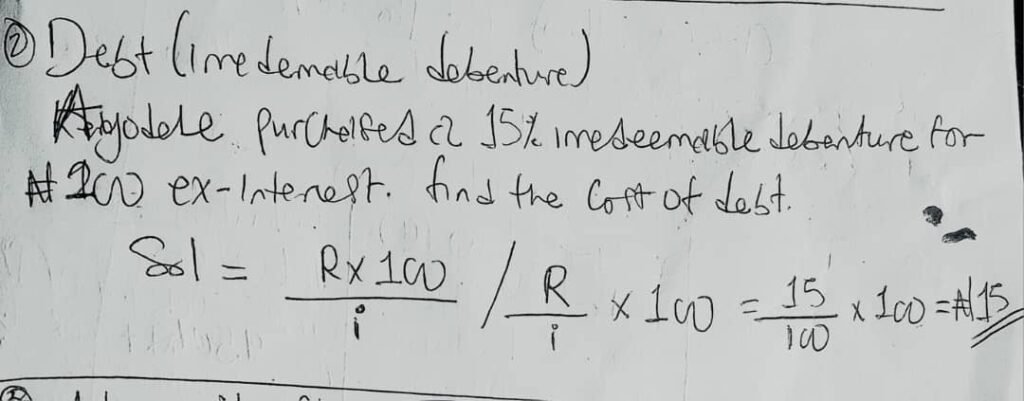 ② Debt (irredemable debenture)
Ayodele purchased a 15% irredeemable debenture for
₦100 ex-interest. find the cost of debt.
Sol = R x 100 / i / R / i x 100 = 15 / 100 x 100 = ₦15